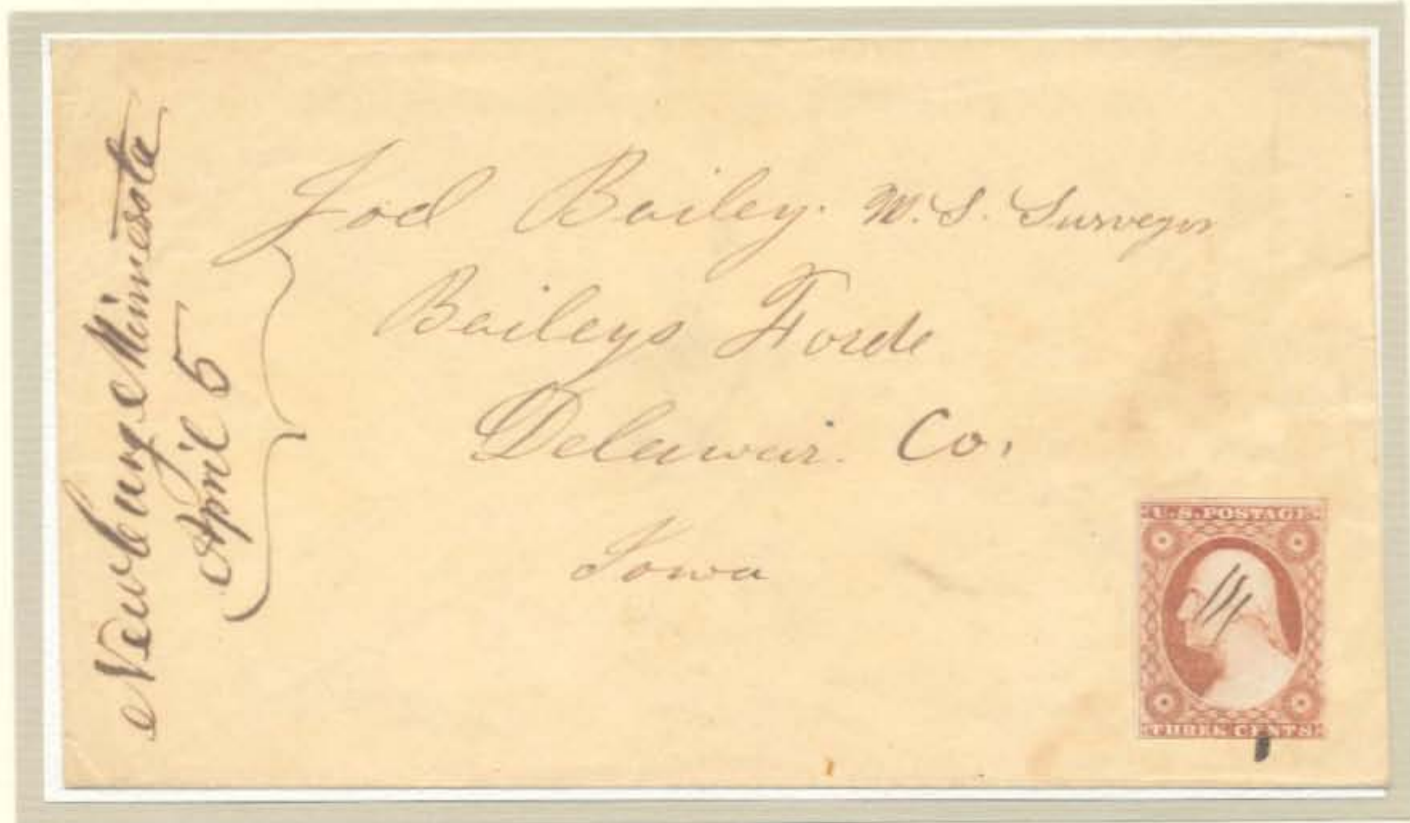 Newburg Minnesota
April 5
Joel Bailey. U.S. Surveyor
Baileys Forde
Delawair. Co.
Iowa
U.S. POSTAGE
THREE CENTS